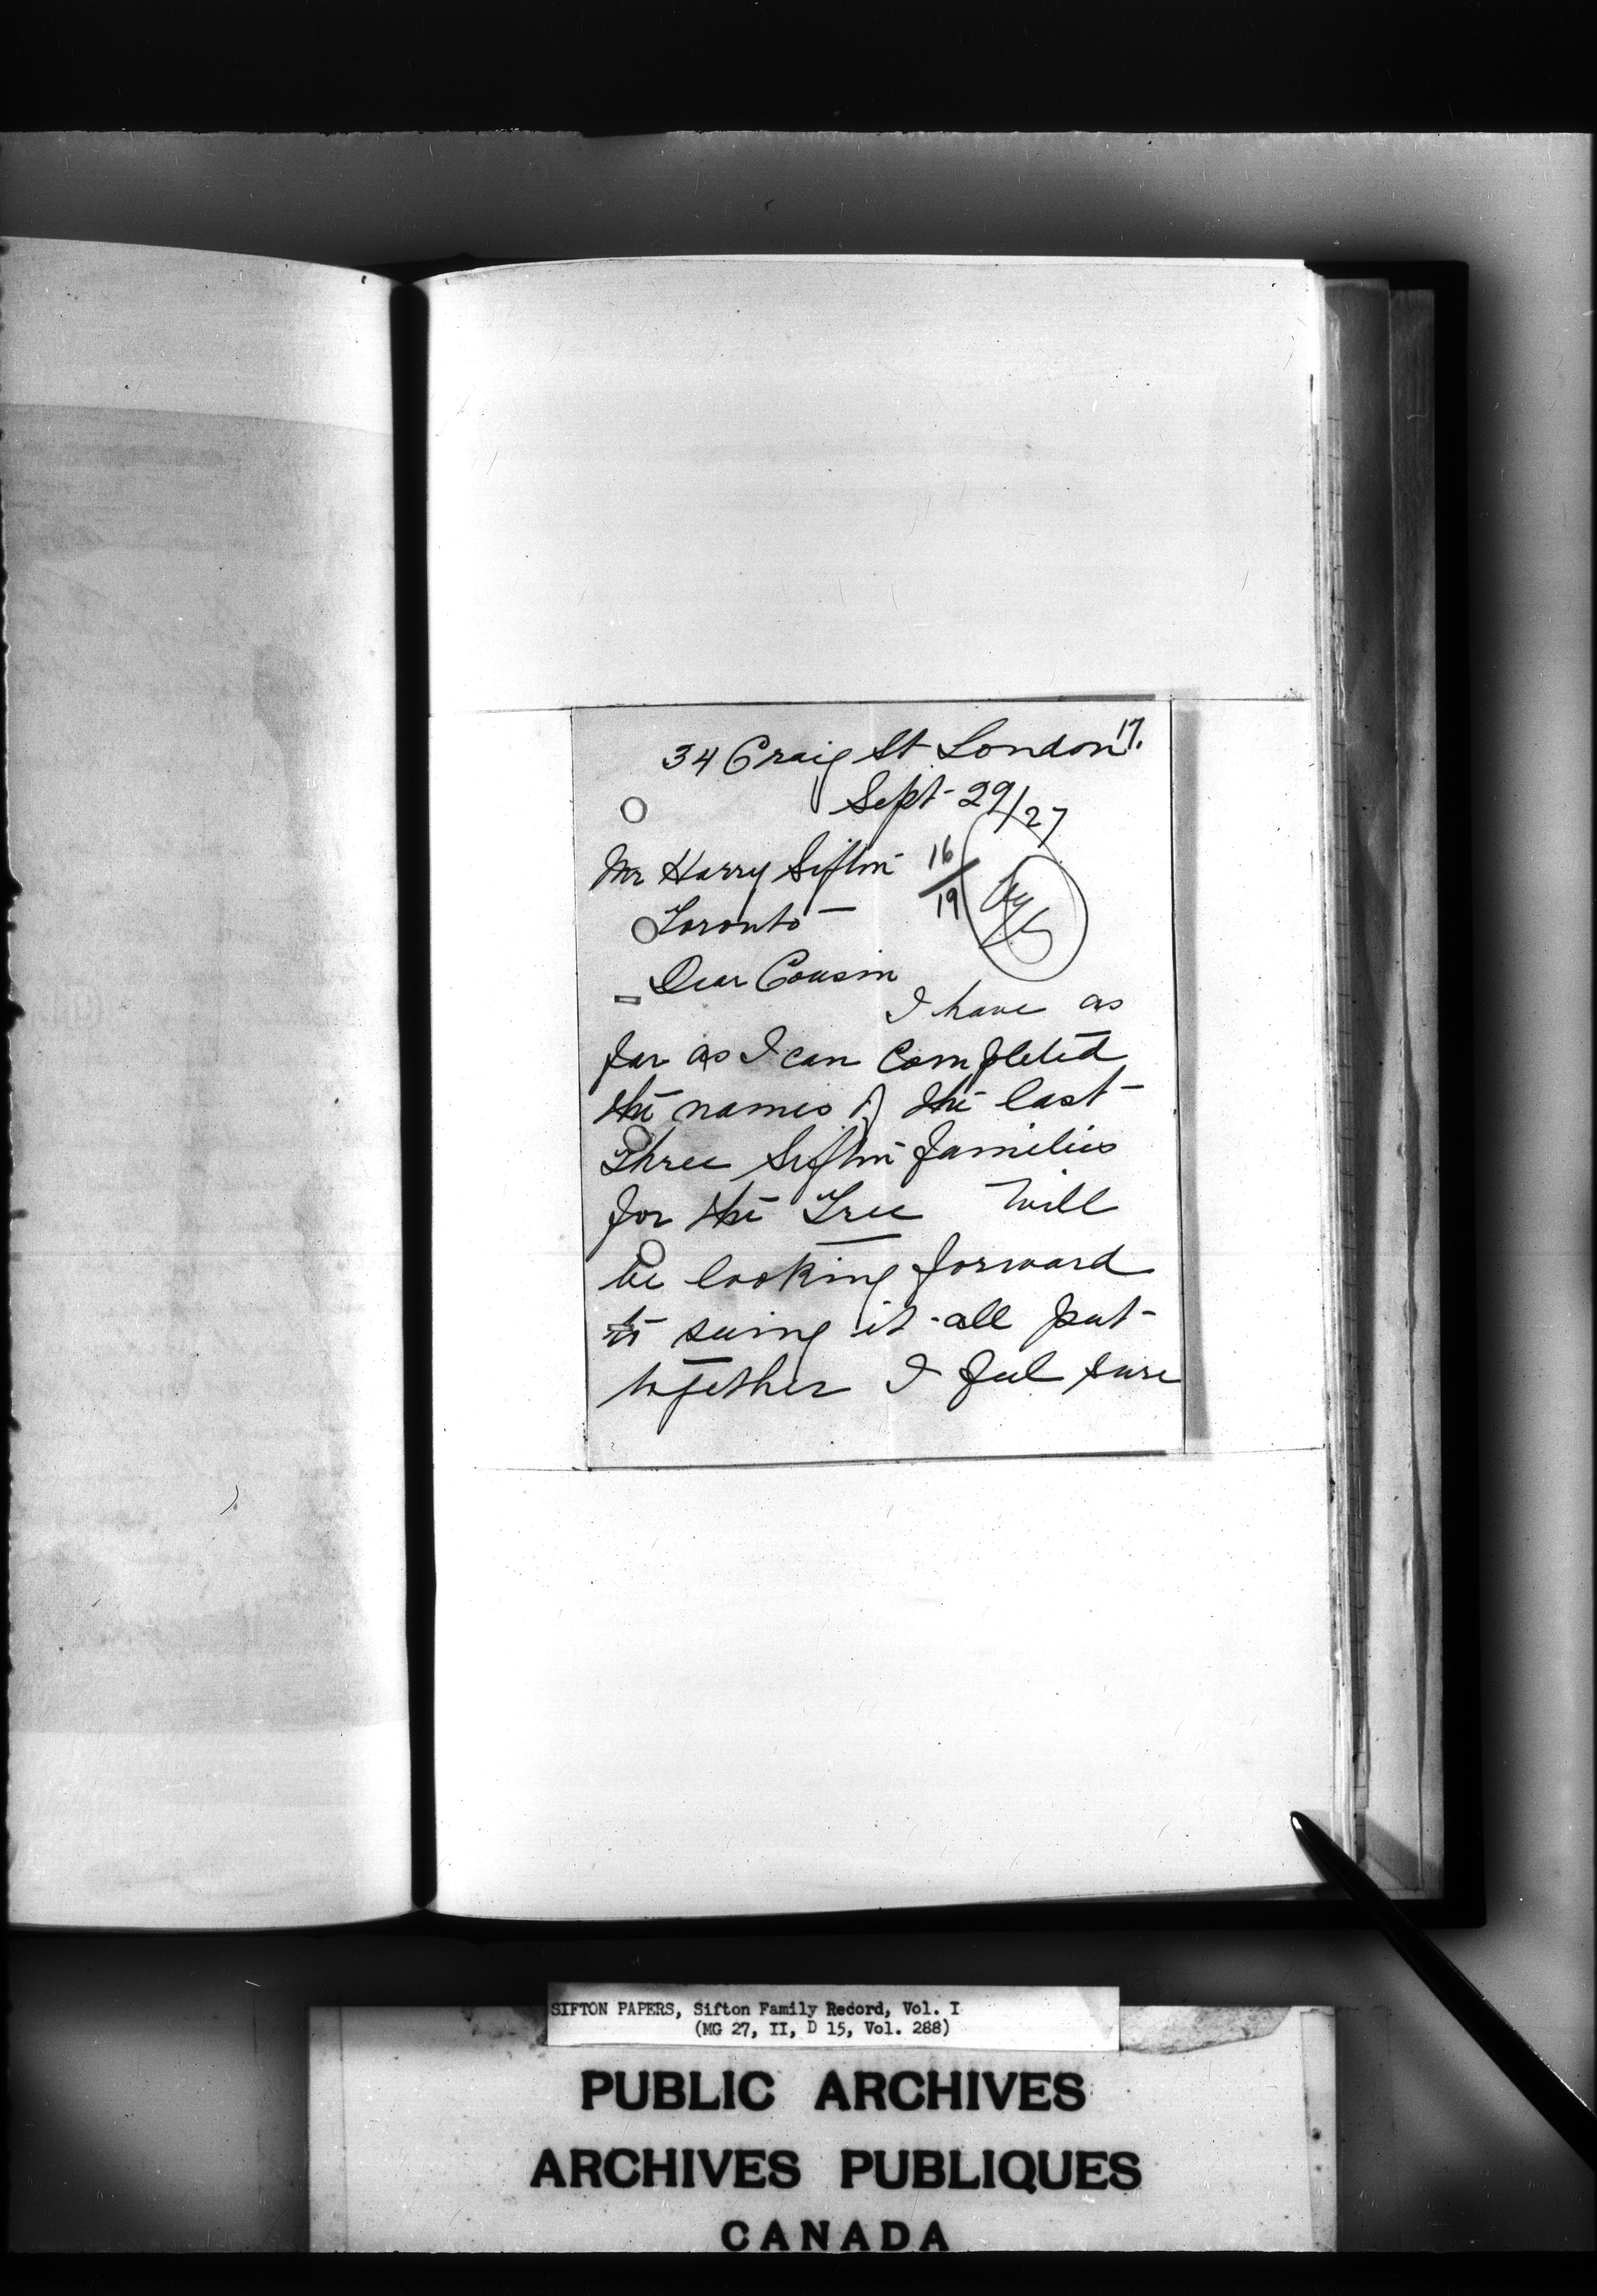 17.
34 Craig St London
Sept 29/27
Mr Harry Sifton
16
19
Toronto
Dear Cousin
I have as
far as I can completed
the names of the last
three Sifton families
for the Tree Will
be looking forward
to seeing it all put
together I feel sure
SIFTON PAPERS, Sifton Family Record, Vol. I
(MG 27, II, D 15, Vol. 288)
PUBLIC ARCHIVES
ARCHIVES PUBLIQUES
CANADA